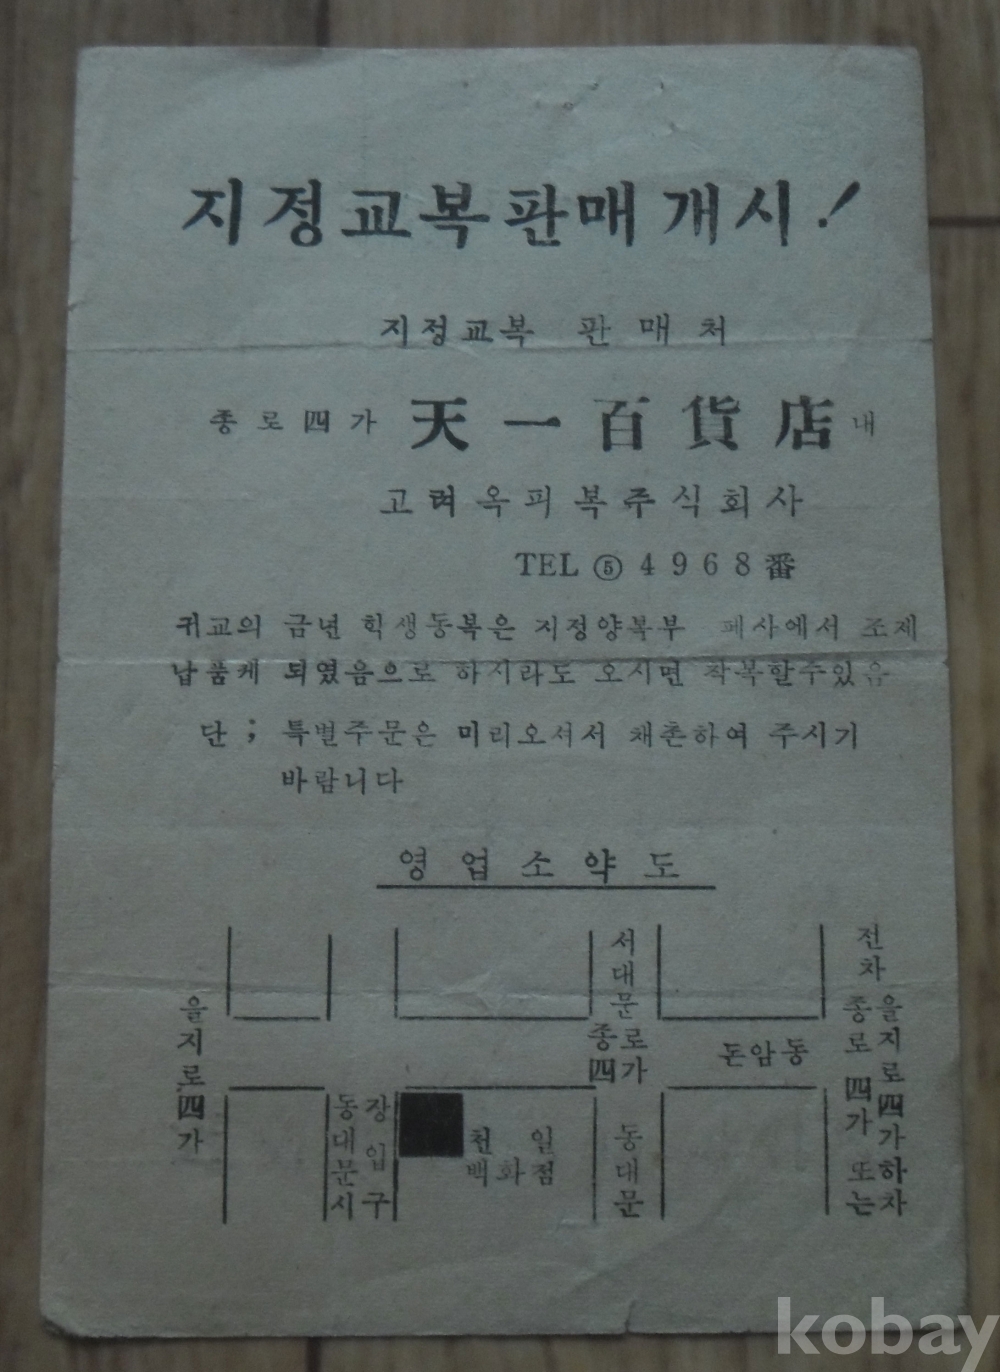 지정교복판매개시!
지정교복 판매처
종로四가 天一百貨店 내
고려옥피복주식회사
TEL ⑤ 4968番
귀교의 금년 학생동복은 지정양복부 폐사에서 조제
납품케 되였음으로 하시라도 오시면 착복할수있음
단; 특별주문은 미리오셔서 채촌하여 주시기
바랍니다
영업소약도
을지로四가
동대문시
장입구
천일
백화점
서대문
종로
四가
동대문
돈암동
전차 종로四가 또는
을지로四가하차
kobay